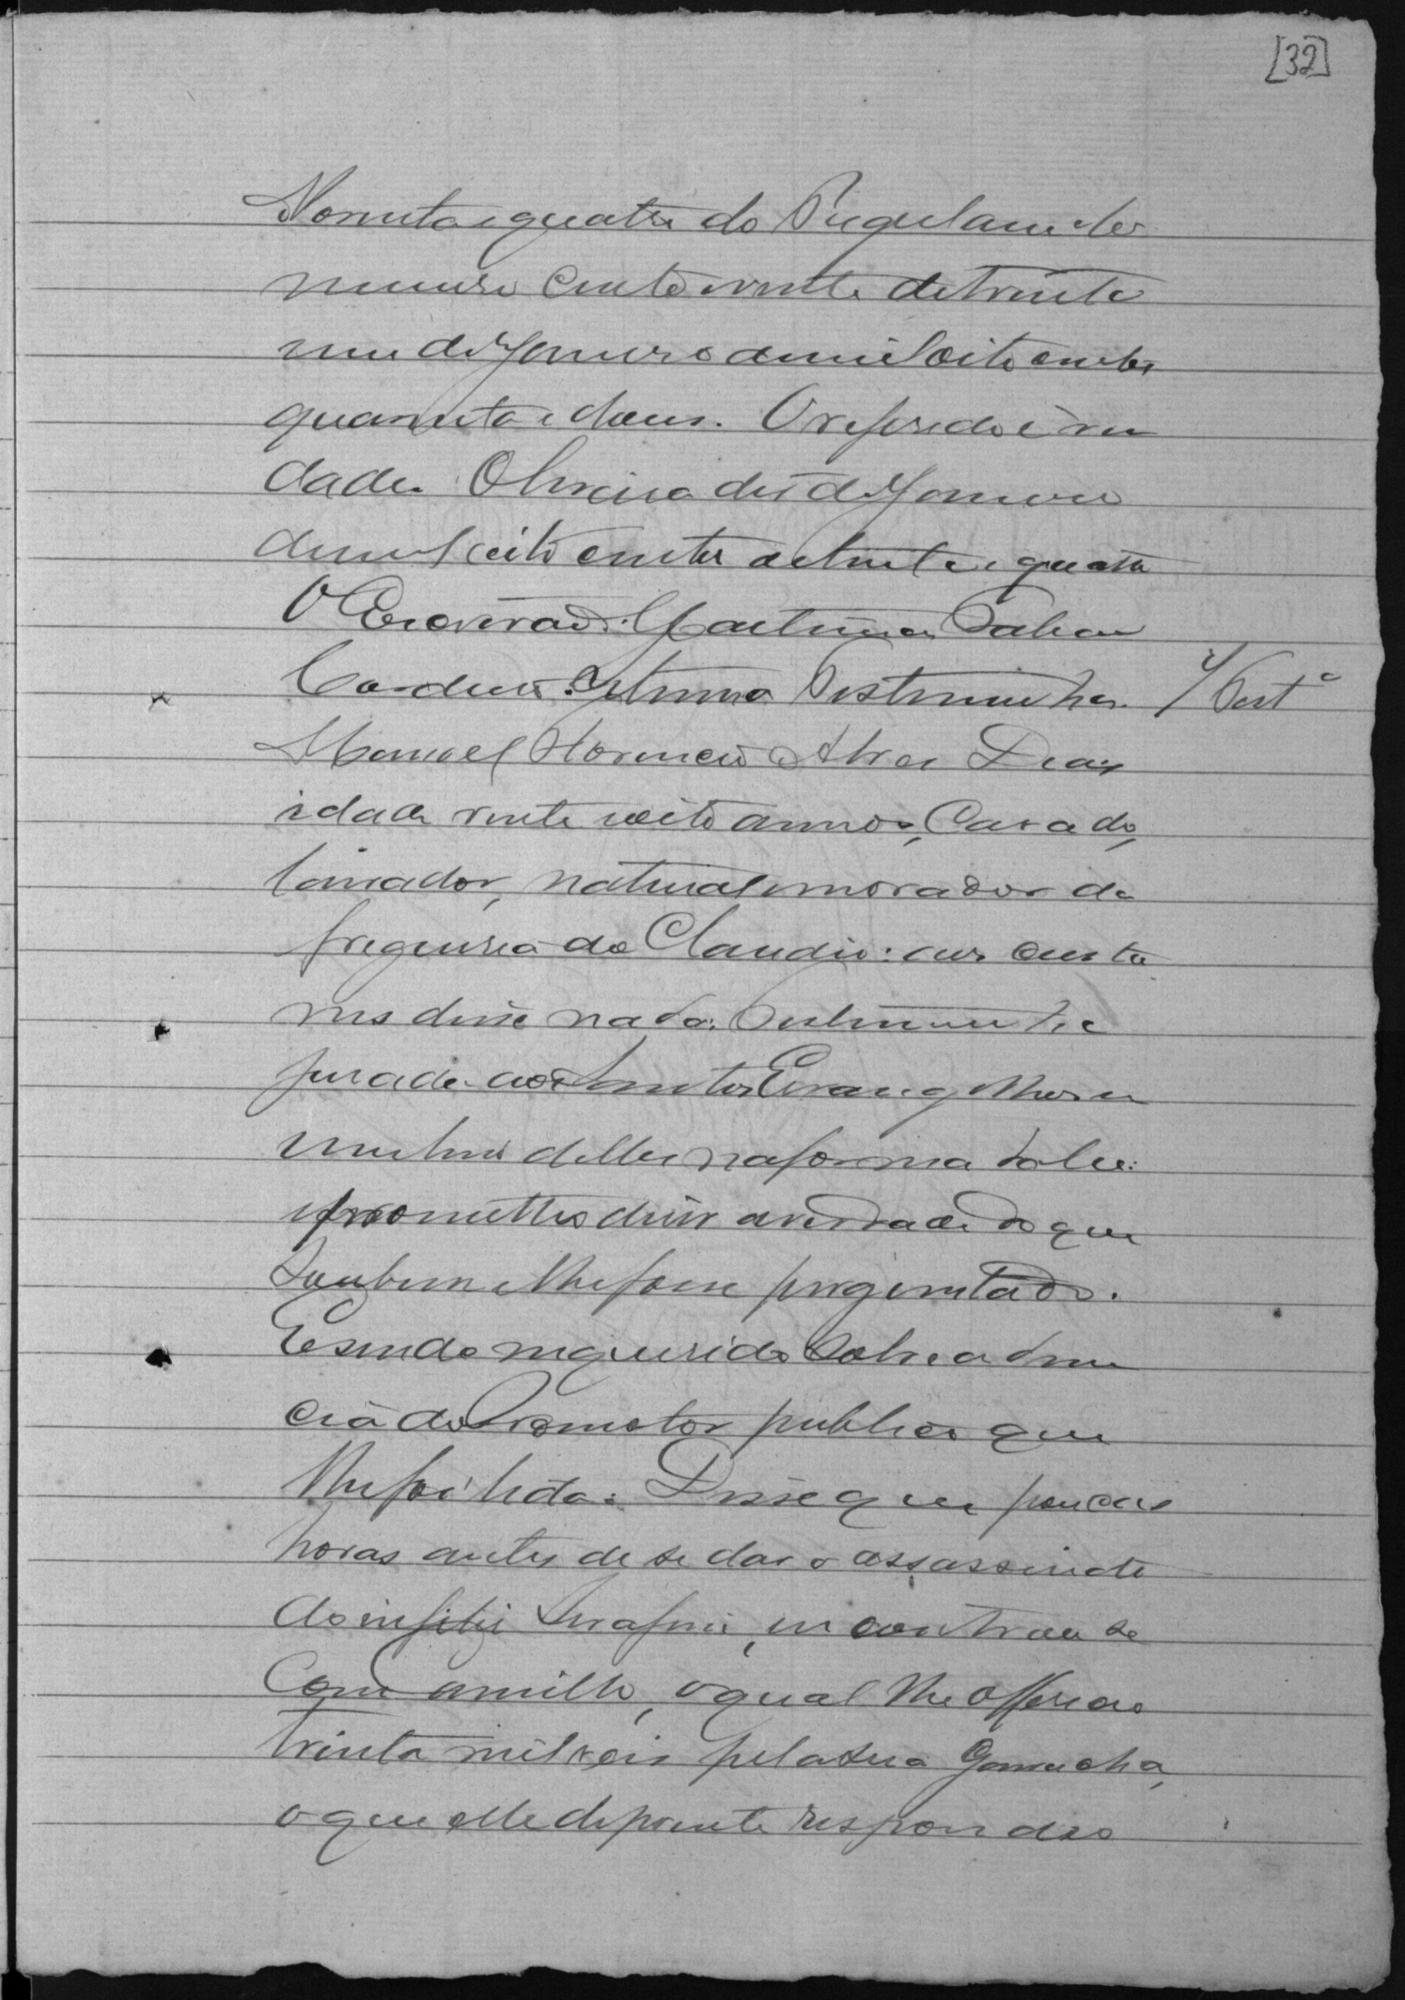 [32]
Noventa e quatro do Regulamento
numero cento e vinte de trinta e
um de Janeiro de mil oito centos
quarenta e dous. O referido é ver
dade. Oliveira dez de Janeiro
de mil oito centos oitenta e quatro
O Escrivão
Cardoso. Setima Testemunha. 7ª Testª
Manoel Alves Dias
idade vinte oito annos, Casado,
lavrador, natural e morador da
freguesia do Claudio: aos costu
mes disse nada. Testemunha
jurada aos Santos Evangelhos em
um livro delles na forma da lei:
e prometteo dizer a verdade do que
soubesse e lhe fosse perguntado.
E sendo inquerido sobre a denun
cia do Promotor publico que
lhe foi lida: Disse que poucas
horas antes de se dar o assassinato
do infeliz Serafim, encontrou se
com Camillo, o qual lhe offereceo
trinta mil reis pela sua garrucha,
o que elle depoente respondeo